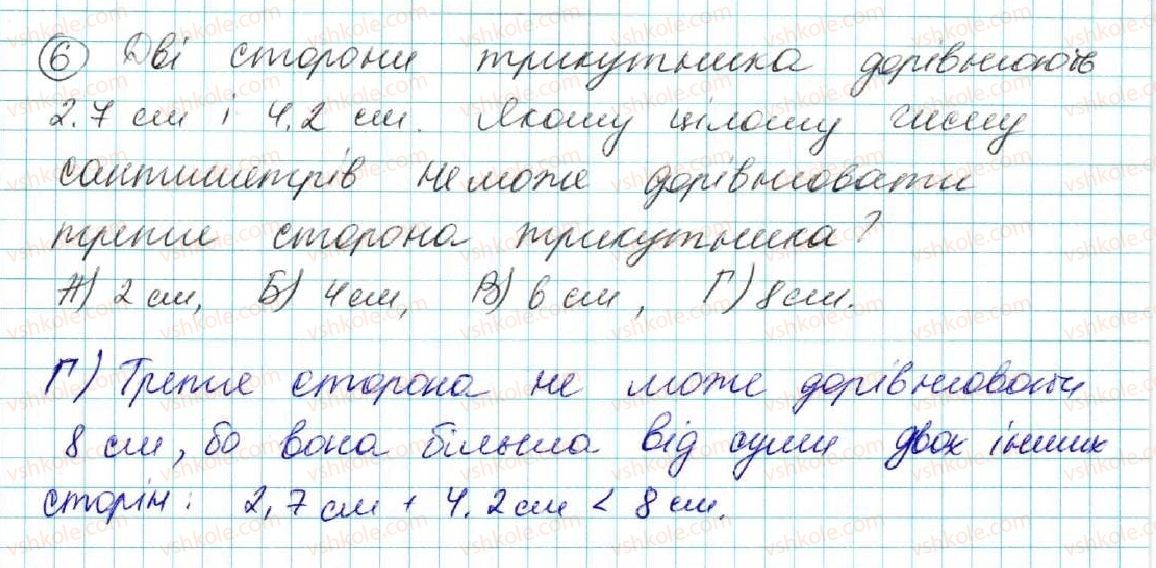 6 Дві сторони трикутника дорівнюють
2.7 см і 4.2 см. Якому цілому числу
сантиметрів не може дорівнювати
третя сторона трикутника?
А) 2 см, Б) 4 см, В) 6 см, Г) 8 см.
Г) Третя сторона не може дорівнювати
8 см, бо вона більша від суми двох інших
сторін: 2,7 см + 4.2 см < 8 см.